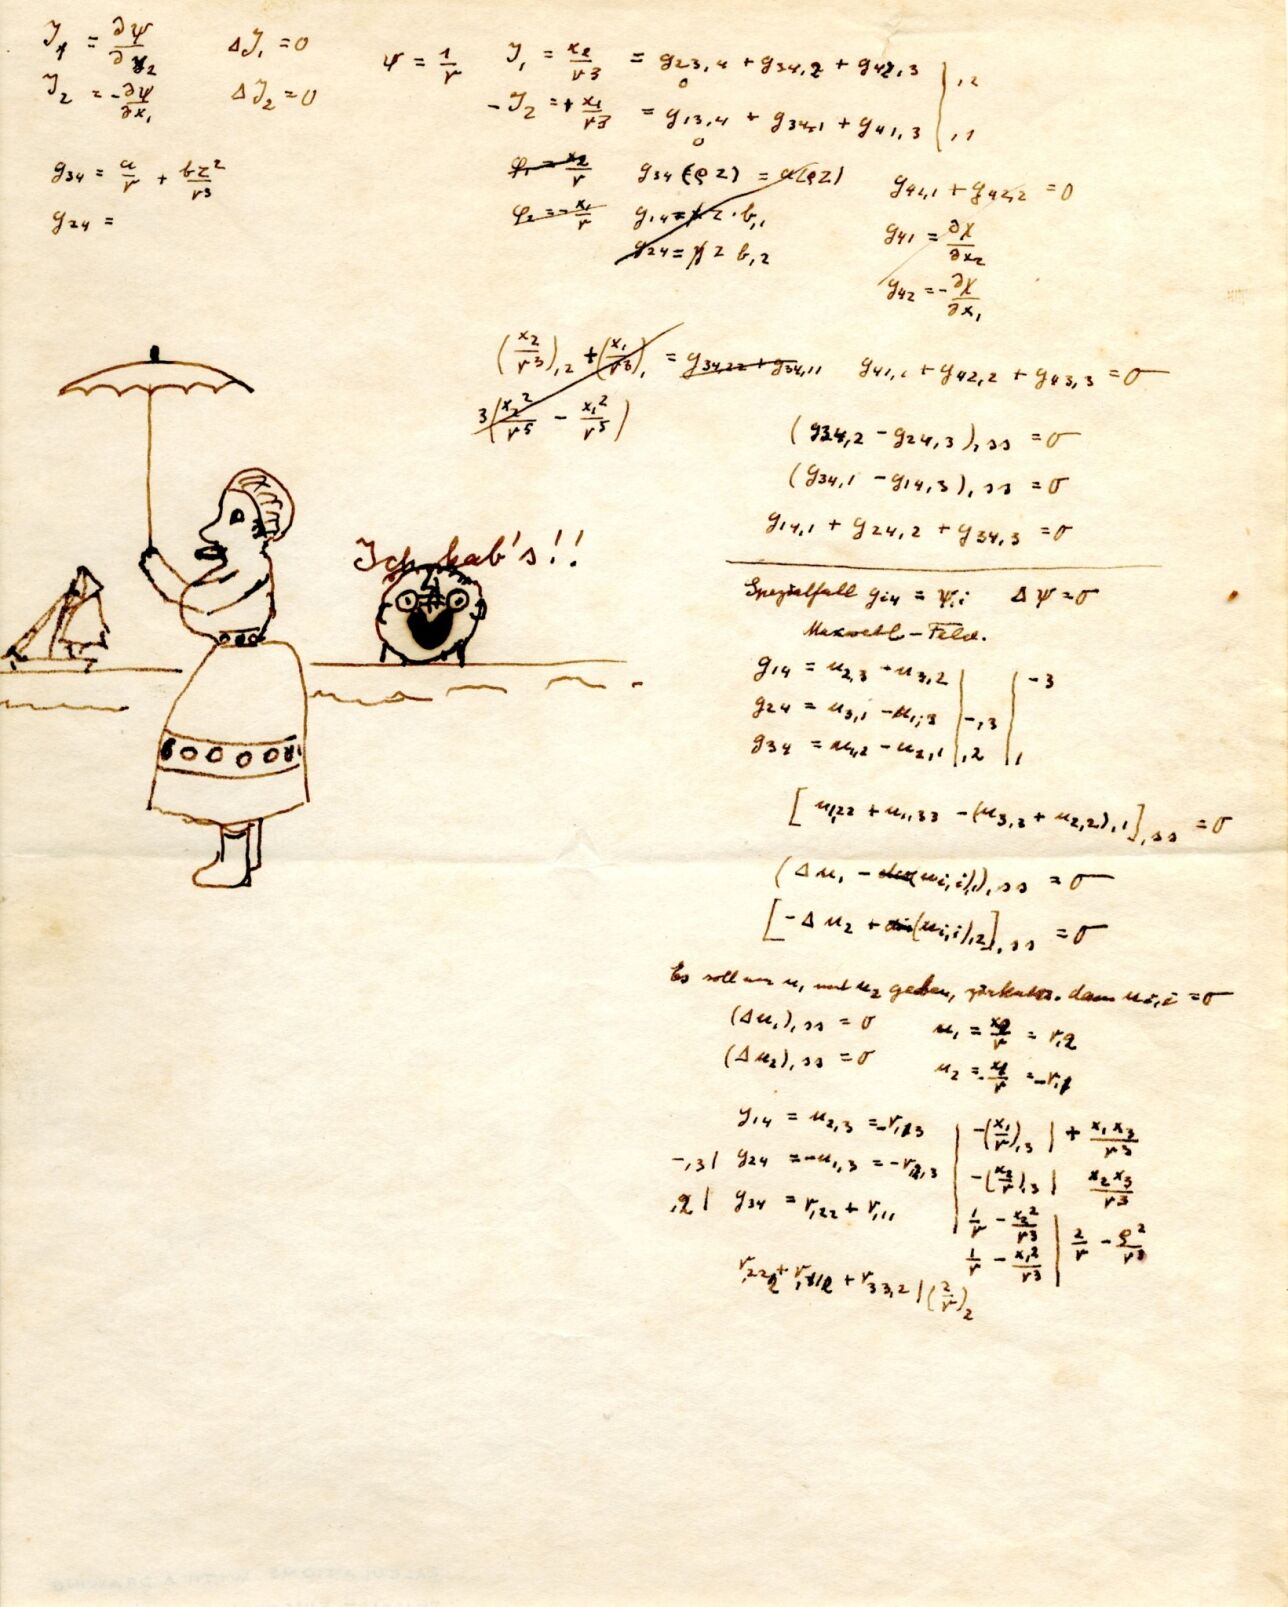 J₁ = ∂ψ/∂x₂ ΔJ₁ = 0
J₂ = -∂ψ/∂x₁ ΔJ₂ = 0
ψ = 1/r J₁ = x₂/r³ = g₂₃,₄ + g₃₄,₂ + g₄₂,₃ | ,2
0
-J₂ = + x₁/r³ = g₁₃,₄ + g₃₄,₁ + g₄₁,₃ | ,1
0
g₃₄ = a/r + bz²/r³
g₂₄ =
φ₁ = x₂/r g₃₄(ρz) = a(ρz)
φ₂ = -x₁/r g₁₄ = z · b,₁
g₂₄ = z b,₂
g₄₁,₁ + g₄₂,₂ = 0
g₄₁ = ∂χ/∂x₂
g₄₂ = -∂χ/∂x₁
(x₂/r³),₂ + (x₁/r³),₁ = g₃₄,₂₂ + g₃₄,₁₁ g₄₁,₁ + g₄₂,₂ + g₄₃,₃ = 0
3(x₂²/r⁵ - x₁²/r⁵)
(g₃₄,₂ - g₂₄,₃),ss = 0
(g₃₄,₁ - g₁₄,₃),ss = 0
g₁₄,₁ + g₂₄,₂ + g₃₄,₃ = 0
Ich hab's!!
Spezialfall g_i4 = ψ,i Δψ = 0
Maxwell-Feld.
g₁₄ = u₂,₃ - u₃,₂ | | -3
g₂₄ = u₃,₁ - u₁,₃ | -,3 |
g₃₄ = u₁,₂ - u₂,₁ | ,2 | ,1
[u₁,₂₂ + u₁,₃₃ - (u₃,₃ + u₂,₂),₁],ss = 0
(Δu₁ - (u_i,i),₁),ss = 0
[-Δu₂ + (u_i,i),₂],ss = 0
Es soll nur u₁ und u₂ geben, dann u_i,i = 0
(Δu₁),ss = 0 u₁ = x₂/r = r,₂
(Δu₂),ss = 0 u₂ = -x₁/r = -r,₁
g₁₄ = u₂,₃ = -r,₁₃ | -(x₁/r),₃ | + x₁x₃/r³
-,3 | g₂₄ = -u₁,₃ = -r,₂,₃ | -(x₂/r),₃ | x₂x₃/r³
,2 | g₃₄ = r,₂₂ + r,₁₁ | 1/r - x₂²/r³ | 2/r - ρ²/r³
1/r - x₁²/r³
r,₂₂₂ + r,₁₁₂ + r₃₃,₂ | (2/r)₂